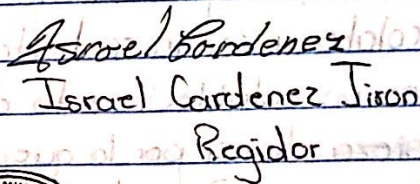 Israel Cardenez
Israel Cardenez Jiron
Regidor